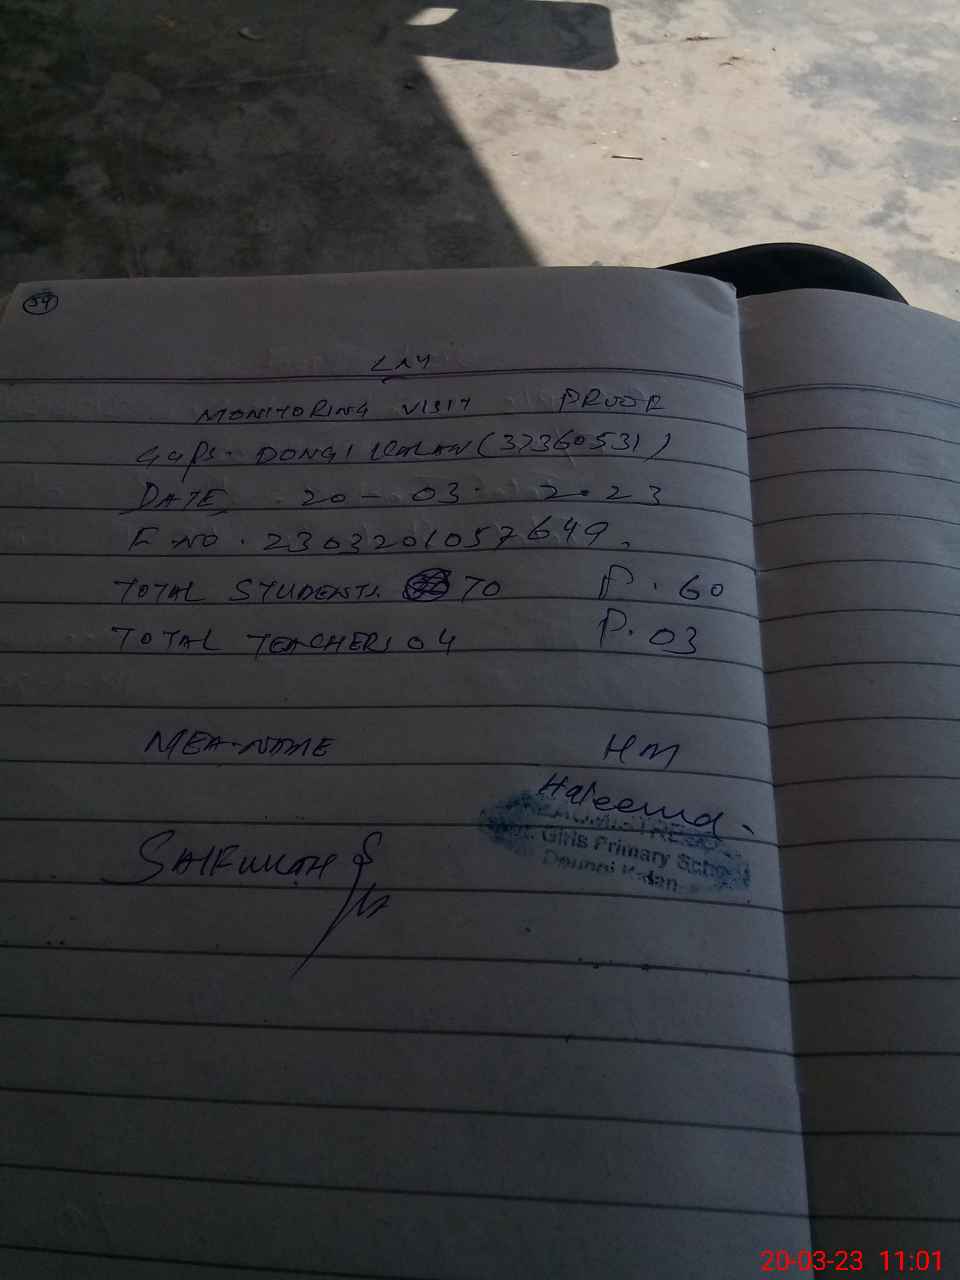 54
LNY
MONITORING VISIT PROOF
GGPS. DONGI KALAN (37360531)
DATE 20-03-2023
F NO. 2303201057649.
TOTAL STUDENTS. 70 P. 60
TOTAL TEACHERS 04 P. 03
MEA-NAME HM
Haleema.
HEADMISTRESS
Govt. Girls Primary School
Doungi Kalan
SAIFULLAH
20-03-23 11:01